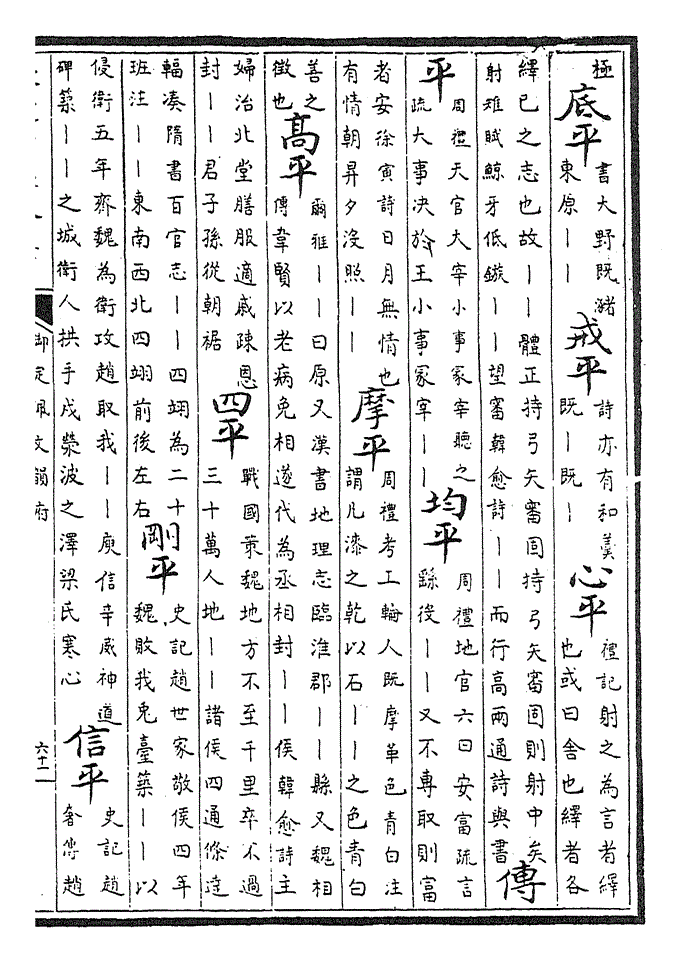 極
底平
書大野既瀦
東原丨丨
戒平
詩亦有和羹
既丨既丨
心平
禮記射之為言者繹
也或曰舍也繹者各
繹已之志也故丨丨體正持弓矢審固持弓矢審固則射中矣
射难賊鯨牙低鏃丨丨望審韓愈詩丨丨而行高兩通詩與書
傳
平
周禮天官大宰小事冢宰聽之
疏大事决於王小事冢宰丨丨
均平
周禮地官六曰安富疏言
繇役丨丨又不專取則富
者安徐寅詩日月無情也
有情朝昇夕沒照丨丨
摩平
周禮考工輪人既摩革色青白注
謂凡漆之乾以石丨丨之色青白
善之
徵也
高平
爾雅丨丨曰原又漢書地理志臨淮郡丨丨縣又魏相
傳韋賢以老病免相遂代為丞相封丨丨侯韓愈詩主
婦治北堂膳服適戚疎恩
封丨丨君子孫從朝裾
四平
戰國策魏地方不至千里卒不過
三十萬人地丨丨諸侯四通條達
輻湊隋書百官志丨丨四翊為二十
班注丨丨東南西北四翊前後左右
剛平
史記趙世家敬侯四年
魏敗我兎臺築丨丨以
侵衛五年齊魏為衛攻趙取我丨丨庾信辛威神道
碑築丨丨之城衛人拱手戍滎波之澤梁氏寒心
信平
史記趙
奢傳趙
御定佩文韻府
六十一